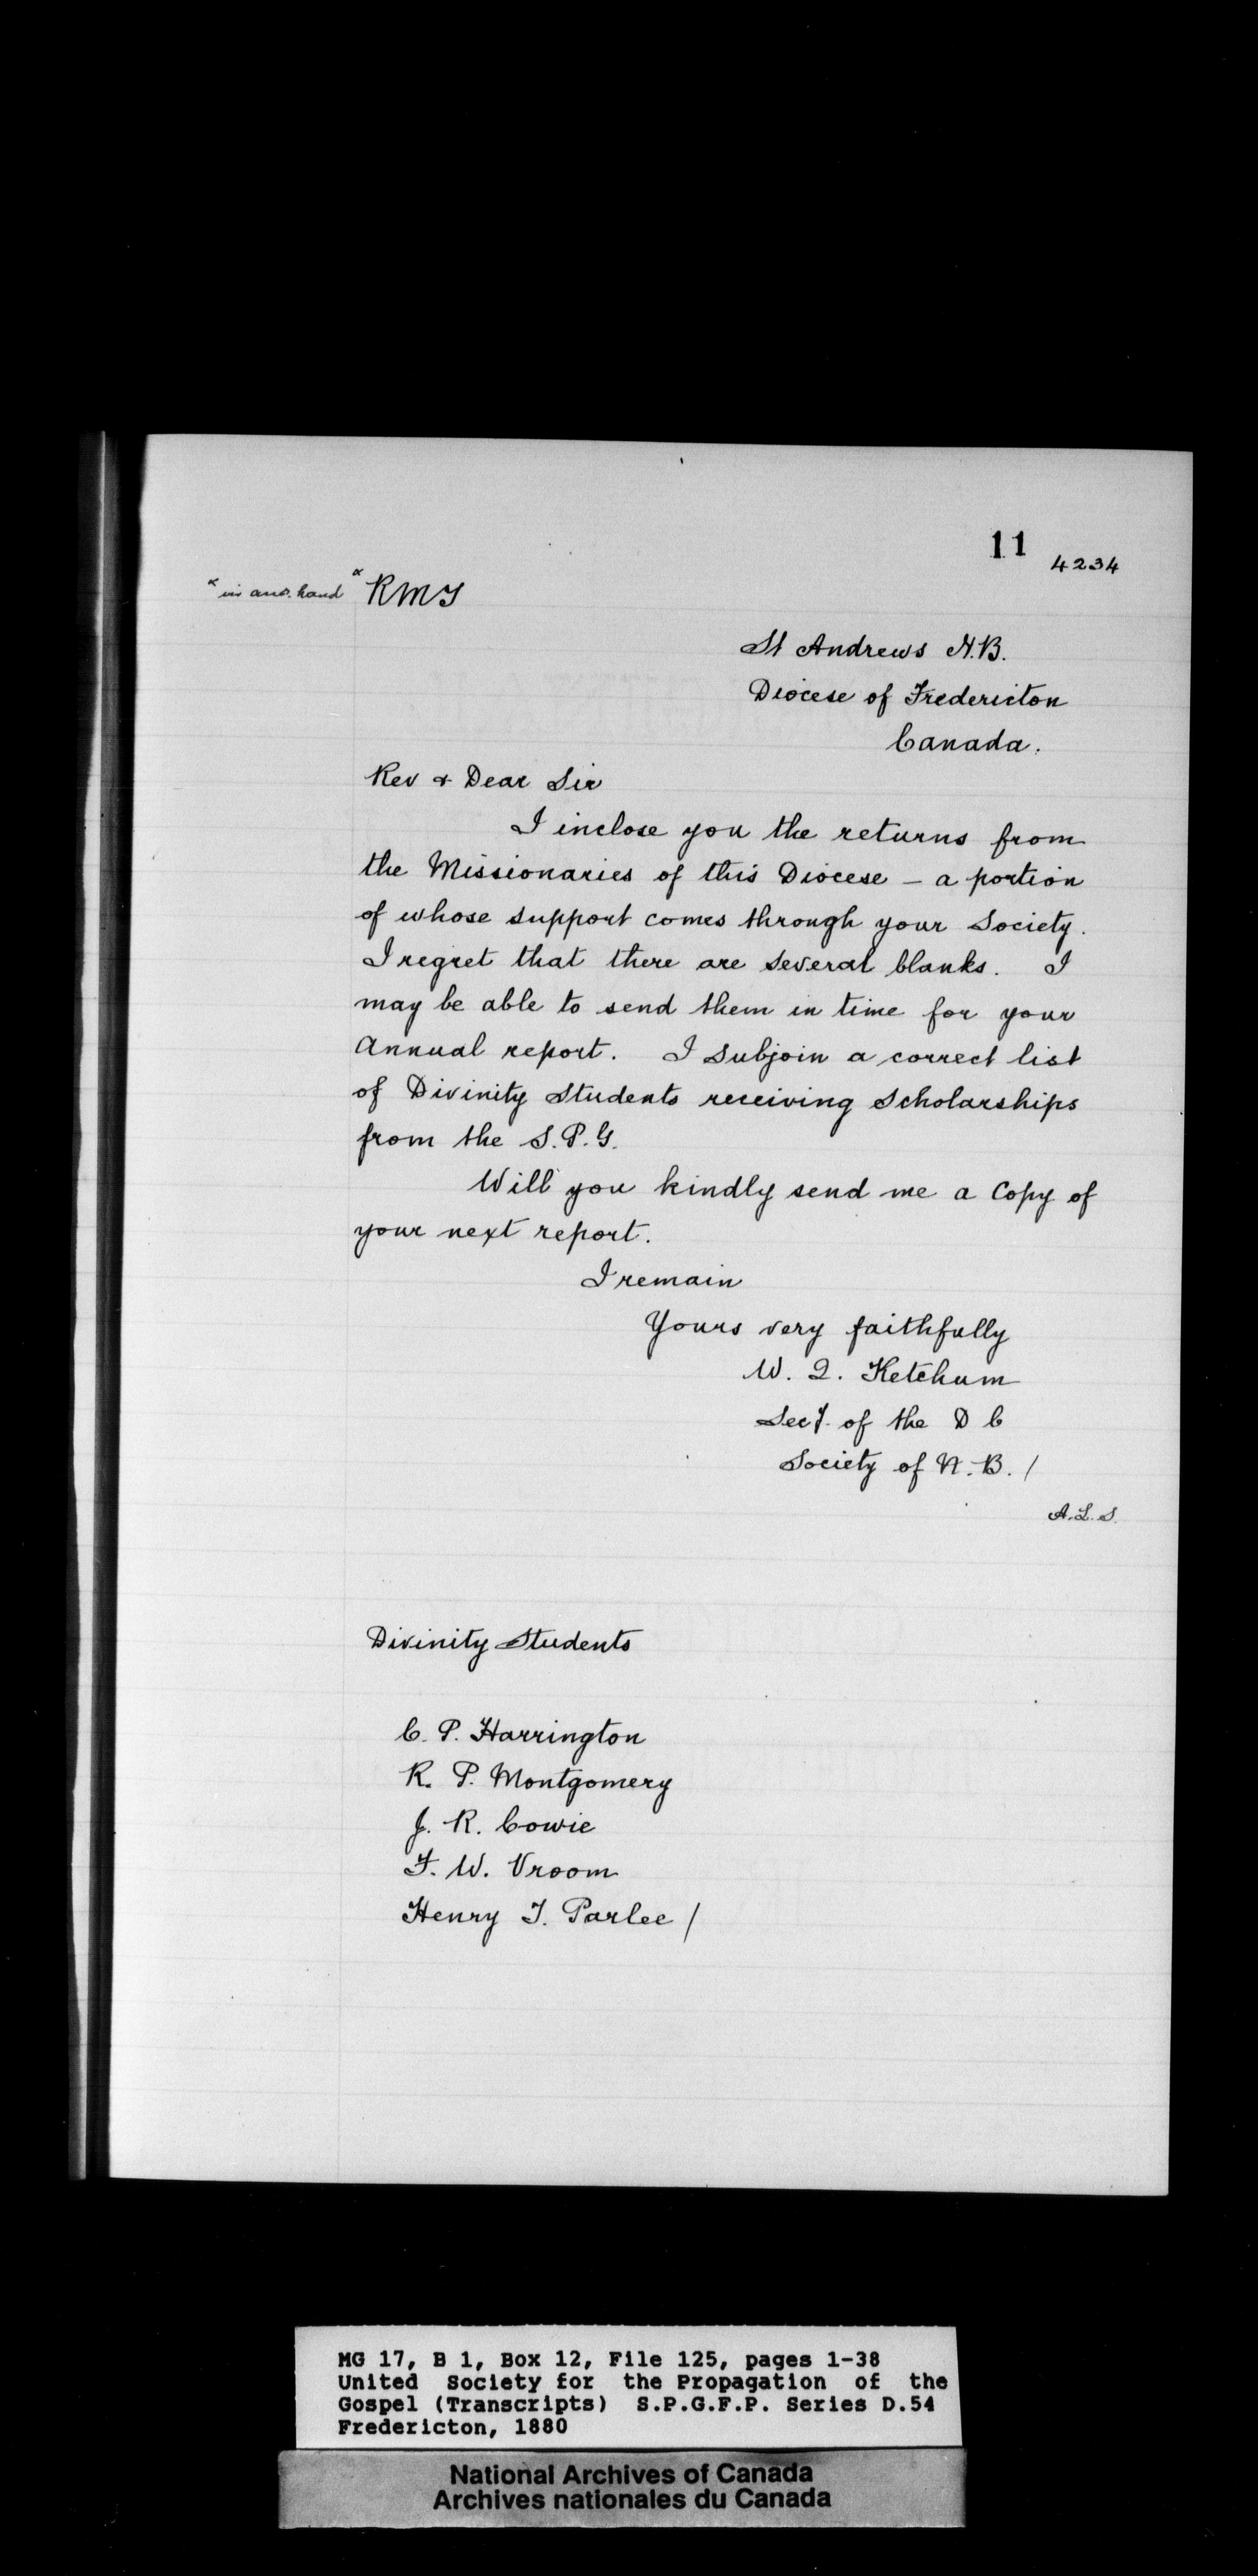 11
4234
x in ano. hand x RMT
St Andrews N.B.
Diocese of Fredericton
Canada.
Rev & Dear Sir
I inclose you the returns from
the Missionaries of this Diocese – a portion
of whose support comes through your Society.
I regret that there are several blanks. I
may be able to send them in time for your
Annual report. I subjoin a correct list
of Divinity Students receiving Scholarships
from the S.P.G.
Will you kindly send me a Copy of
your next report.
I remain
Yours very faithfully
W. Q. Ketchum
Secy. of the D C
Society of N.B. /
A.L.S.
Divinity Students
C. P. Harrington
R. P. Montgomery
J. R. Cowie
F. W. Vroom
Henry T. Parlee /
MG 17, B 1, Box 12, File 125, pages 1-38
United Society for the Propagation of the
Gospel (Transcripts) S.P.G.F.P. Series D.54
Fredericton, 1880
National Archives of Canada
Archives nationales du Canada